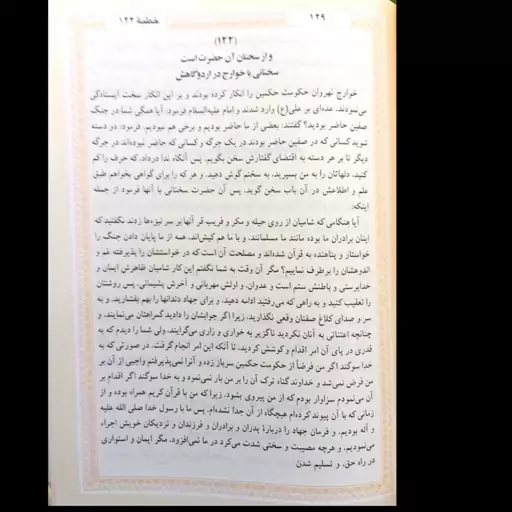 ۱۲۹
خطبهٔ ۱۲۲
(۱۲۲)
و از سخنان آن حضرت است
سخنانی با خوارج در اردوگاهش
خوارج نهروان حکومت حکمین را انکار کرده بودند و بر این انکار سخت ایستادگی
می‌نمودند، عده‌ای بر علی(ع) وارد شدند و امام علیه‌السلام فرمود: آیا همگی شما در جنگ
صفین حاضر بودید؟ گفتند: بعضی از ما حاضر بودیم و برخی هم نبودیم. فرمود: دو دسته
شوید کسانی که در صفین حاضر بودند در یک جرگه و کسانی که حاضر نبوده‌اند در جرگه
دیگر تا بر هر دسته به اقتضای گفتارش سخن بگویم. پس آنگاه ندا درداد، که حرف را کم
کنید، دلهاتان را به من بسپرید، به سخنم گوش دهید. و هر که را برای گواهی بخواهم طبق
علم و اطلاعش در آن باب سخن گوید. پس آن حضرت سخنانی با آنها فرمود از جمله
اینکه:
آیا هنگامی که شامیان از روی حیله و مکر و فریب قر آنها بر سر نیزه‌ها زدند نگفتید که
اینان برادران ما بوده مانند ما مسلمانند، و با ما هم کیش‌اند، همه از ما پایان دادن جنگ را
خواستار و پناهنده به قرآن شده‌اند و مصلحت آن است که در خواستشان را پذیرفته غم و
اندوهشان را برطرف نماییم؟ مگر آن وقت به شما نگفتم این کار شامیان ظاهرش ایمان و
خداپرستی و باطنش ستم است و عدوان، و اولش مهربانی و آخرش پشیمانی، پس روشتان
را تعقیب کنید و به راهی که می‌رفتید ادامه دهید، و برای جهاد دندانها را بهم بفشارید. و به
سر و صدای کلاغ صفتان وقعی نگذارید، زیرا اگر جوابشان را دادید گمراهتان می‌نمایند، و
چنانچه اعتنائی به آنان نکردید ناگزیر به خواری و زاری می‌گرایند، ولی شما را دیدم که به
قدری در پای آن امر اقدام و کوشش کردید، تا آنکه این امر انجام گرفت، در صورتی که به
خدا سوگند اگر من فرضاً از حکومت حکمین سرباز زده و آنرا نمی‌پذیرفتم واجبی از آن بر
من فرض نمی‌شد و خداوند گناه ترک آن را بر من بار نمی‌نمود و به خدا سوگند اگر اقدام بر
آن می‌نمودم سزاوار بودم که از من پیروی بشود. زیرا که من با قرآن کریم همراه بوده و از
زمانی که با آن پیوند کرده‌ام هیچگاه از آن جدا نشده‌ام. پس ما با رسول خدا صلی الله علیه
و آله بودیم، و فرمان جهاد را دربارهٔ پدران و برادران و فرزندان و نزدیکان خویش اجراء
می‌نمودیم. و هرچه مصیبت و سختی شدت می‌کرد در ما نمی‌افزود، مگر ایمان و استواری
در راه حق، و تسلیم شدن